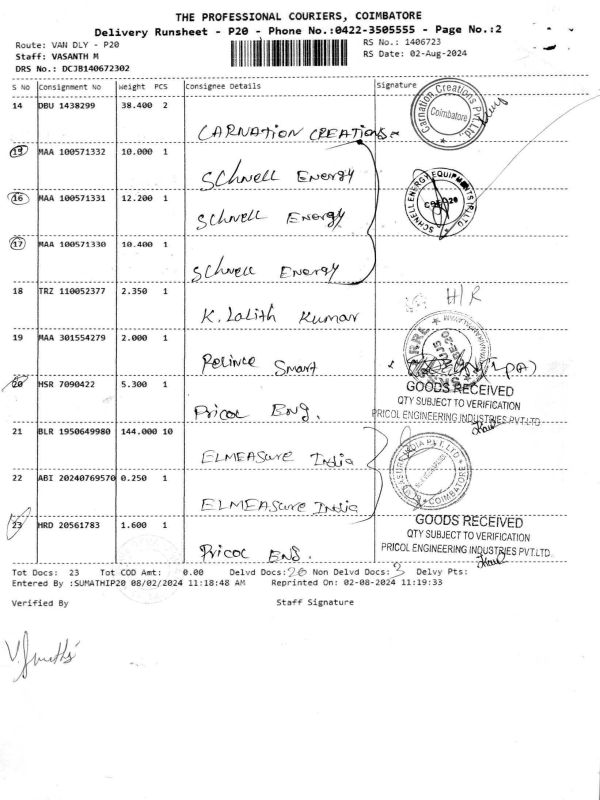 THE PROFESSIONAL COURIERS, COIMBATORE
Delivery Runsheet - P20 - Phone No.:0422-3505555 - Page No.:2
Route: VAN DLY - P20 RS No.: 1406723
Staff: VASANTH M RS Date: 02-Aug-2024
DRS No.: DCJB140672302
S No Consignment No Weight PCS Consignee Details Signature
14 DBU 1438299 38.400 2
CARNATION CREATIONS
Carnation Creations Pvt. Ltd. Coimbatore
15 MAA 100571332 10.000 1
Schnell Energy
16 MAA 100571331 12.200 1
Schnell Energy
SCHNELL ENERGY EQUIPMENTS (P) LTD
17 MAA 100571330 10.400 1
Schnell Energy
18 TRZ 110052377 2.350 1 H/R
K. Lalith Kumar
19 MAA 301554279 2.000 1
Relince Smart
20 HSR 7090422 5.300 1 GOODS RECEIVED
QTY SUBJECT TO VERIFICATION
Pricol Eng. PRICOL ENGINEERING INDUSTRIES PVT.LTD.
21 BLR 1950649980 144.000 10
ELMEASURE India
22 ABI 20240769570 0.250 1
ELMEASURE India
COIMBATORE
23 HRD 20561783 1.600 1 GOODS RECEIVED
QTY SUBJECT TO VERIFICATION
Pricol Eng. PRICOL ENGINEERING INDUSTRIES PVT.LTD.
Tot Docs: 23 Tot COD Amt: 0.00 Delvd Docs: 20 Non Delvd Docs: 3 Delvy Pts:
Entered By :SUMATHIP20 08/02/2024 11:18:48 AM Reprinted On: 02-08-2024 11:19:33
Verified By Staff Signature